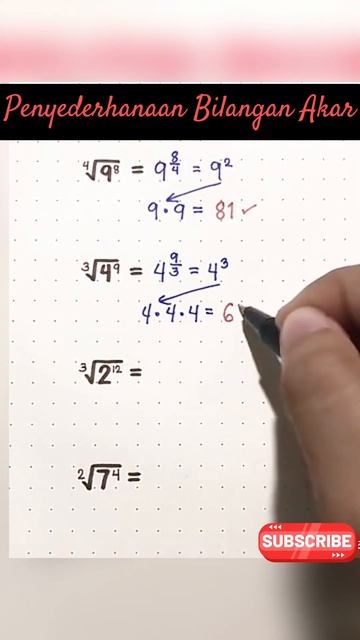 Penyederhanaan Bilangan Akar
⁴√9⁸ = 9^(8/4) = 9²
9 · 9 = 81 ✓
³√4⁹ = 4^(9/3) = 4³
4 · 4 · 4 = 6
³√2¹² =
²√7⁴ =
SUBSCRIBE